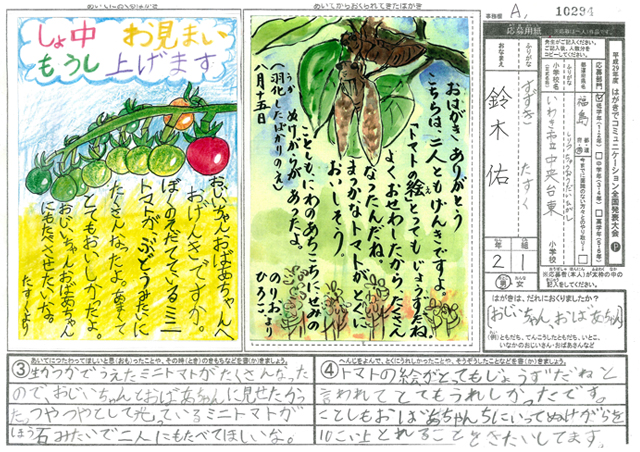 あいてからおくられてきたはがき
しょ中 お見まい
もうし上げます
おじいちゃんおばあちゃんへ
おげんきですか。
ぼくのそだてているミニ
トマトが、ぶどうみたいに
たくさんなったよ。あまくて
とてもおいしかったよ。
おじいちゃんおばあちゃん
にもたべさせたいな。
たすくより
おはがきありがとう
こちらは、二人ともげんきですよ。
「トマトの絵とってもじょうずだね。
よくおせわしたから、たくさん
なったんだね。
まっかなトマトがとくに
おいしそう。
ことしも、にわのあちこちにせみの
ぬけがらがあったよ。
のりお
ひろこより
(羽化したばかりのえ)
八月十五日
事務欄 A, 10294
応募用紙
平成29年度 はがきでコミュニケーション全国発表大会 P
応募部門
低学年(1~2年)
中学年(3~4年)
高学年(5~6年)
福島
いわき市立中央台東
小学校
ふりがな
おなまえ
すずき たすく
鈴木 佑
2 1
男
女
はがきは、だれにおくりましたか?
(おじいちゃん、おばあちゃん)
(例)ともだち、てんこうしたともだち、いとこ、
いなかのおじいさん・おばあさんなど
③
あいてにつたわってほしいと思(おも)ったことや、その時(とき)のきもちなどを書(か)きましょう。
生かつかでうえたミニトマトがたくさんなった
ので、おじいちゃんとおばあちゃんに見せたかっ
た。つやつやとして光っているミニトマトが
ほう石みたいで二人にもたべてほしいな。
④
へんじをよんで、とくにうれしかったことや、そうぞうしたことなどを書(か)きましょう。
トマトの絵がとてもじょうずだねと
言われてとてもうれしかったです。
ことしもおばあちゃんちにいってぬけがらを
10こい上とれることをきたいしてます。